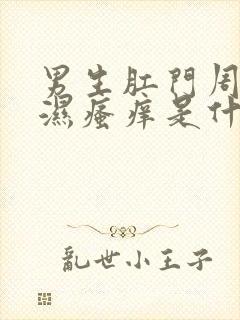 男生肛門周
濕瘙痒是什
亂世小王子